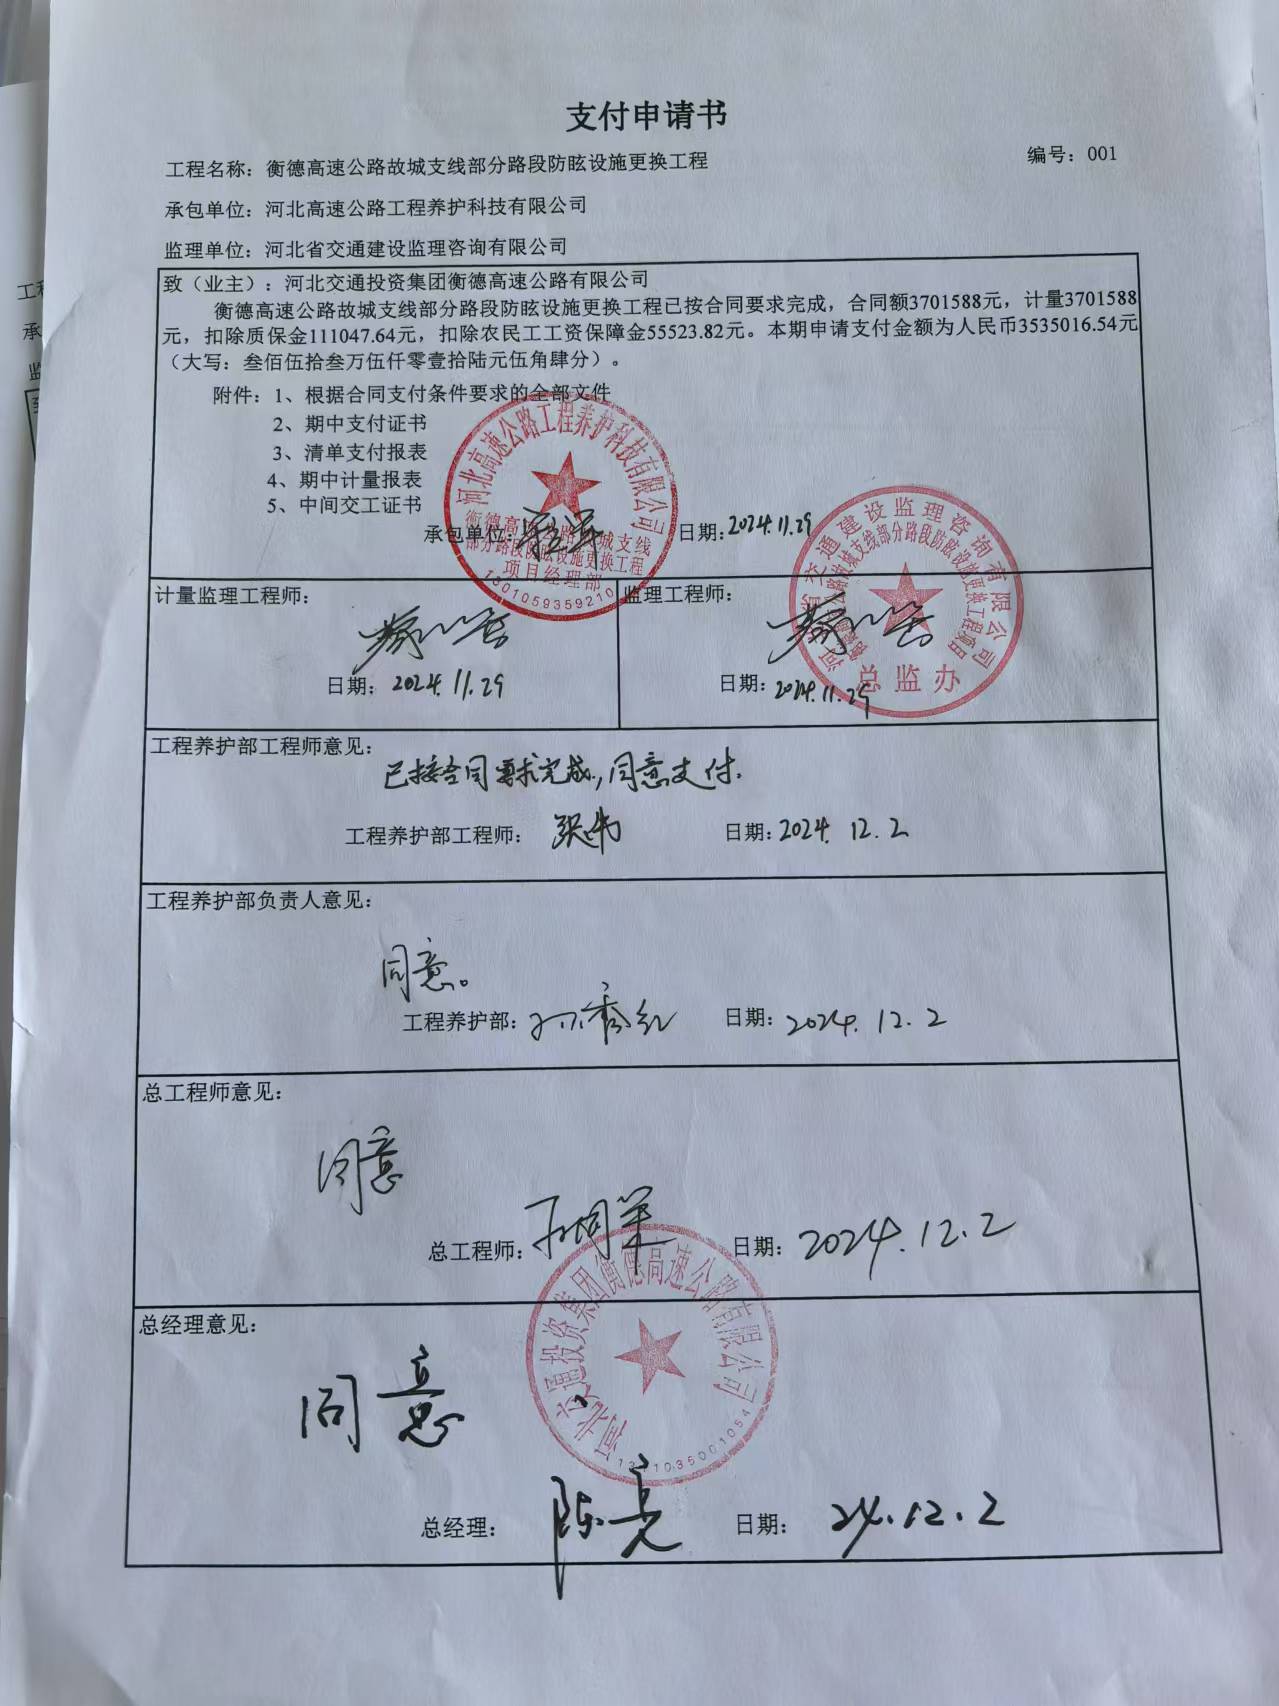 支付申请书
工程名称：衡德高速公路故城支线部分路段防眩设施更换工程
编号：001
承包单位：河北高速公路工程养护科技有限公司
监理单位：河北省交通建设监理咨询有限公司
致（业主）：河北交通投资集团衡德高速公路有限公司
衡德高速公路故城支线部分路段防眩设施更换工程已按合同要求完成，合同额3701588元，计量3701588
元，扣除质保金111047.64元，扣除农民工工资保障金55523.82元。本期申请支付金额为人民币3535016.54元
（大写：叁佰伍拾叁万伍仟零壹拾陆元伍角肆分）。
附件：1、根据合同支付条件要求的全部文件
2、期中支付证书
3、清单支付报表
4、期中计量报表
5、中间交工证书
承包单位： 日期：2024.11.29
河北高速公路工程养护科技有限公司
衡德高速公路故城支线
部分路段防眩设施更换工程
项目经理部
1301059359210
计量监理工程师：
日期：2024.11.29
监理工程师：
日期：2024.11.29
河北省交通建设监理咨询有限公司
衡德高速公路故城支线部分路段防眩设施更换工程项目
总监办
工程养护部工程师意见：
已按合同要求完成，同意支付.
工程养护部工程师：张伟 日期：2024.12.2
工程养护部负责人意见：
同意。
工程养护部：孙秀红 日期：2024.12.2
总工程师意见：
同意
总工程师： 日期：2024.12.2
总经理意见：
同意
河北交通投资集团衡德高速公路有限公司
总经理：陈亮 日期：24.12.2